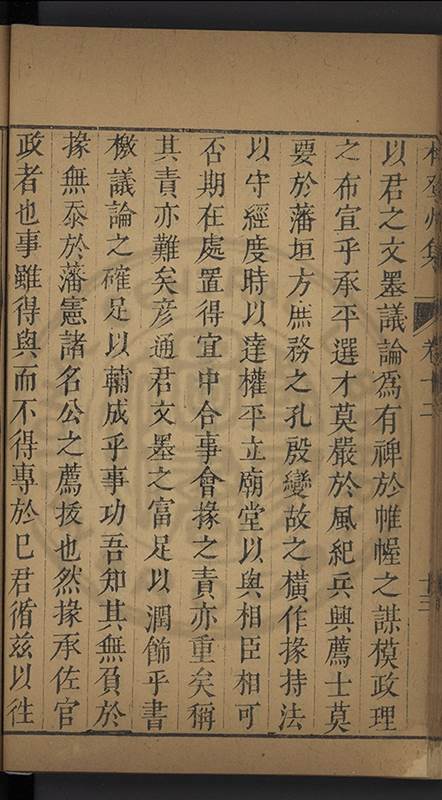 卷十二
以君之文墨議論爲有裨於帷幄之謀模政理
之布宣乎承平選才莫嚴於風紀兵興薦士莫
要於藩垣方庶務之孔殷變故之橫作掾持法
以守經度時以達權平立廟堂以與相臣相可
否期在處置得宜申合事會掾之責亦重矣稱
其責亦難矣彥通君文墨之富足以潤飾乎書
檄議論之確足以輔成乎事功吾知其無負於
掾無忝於藩憲諸名公之薦拔也然掾承佐官
政者也事雖得與而不得專於巳君循茲以徃